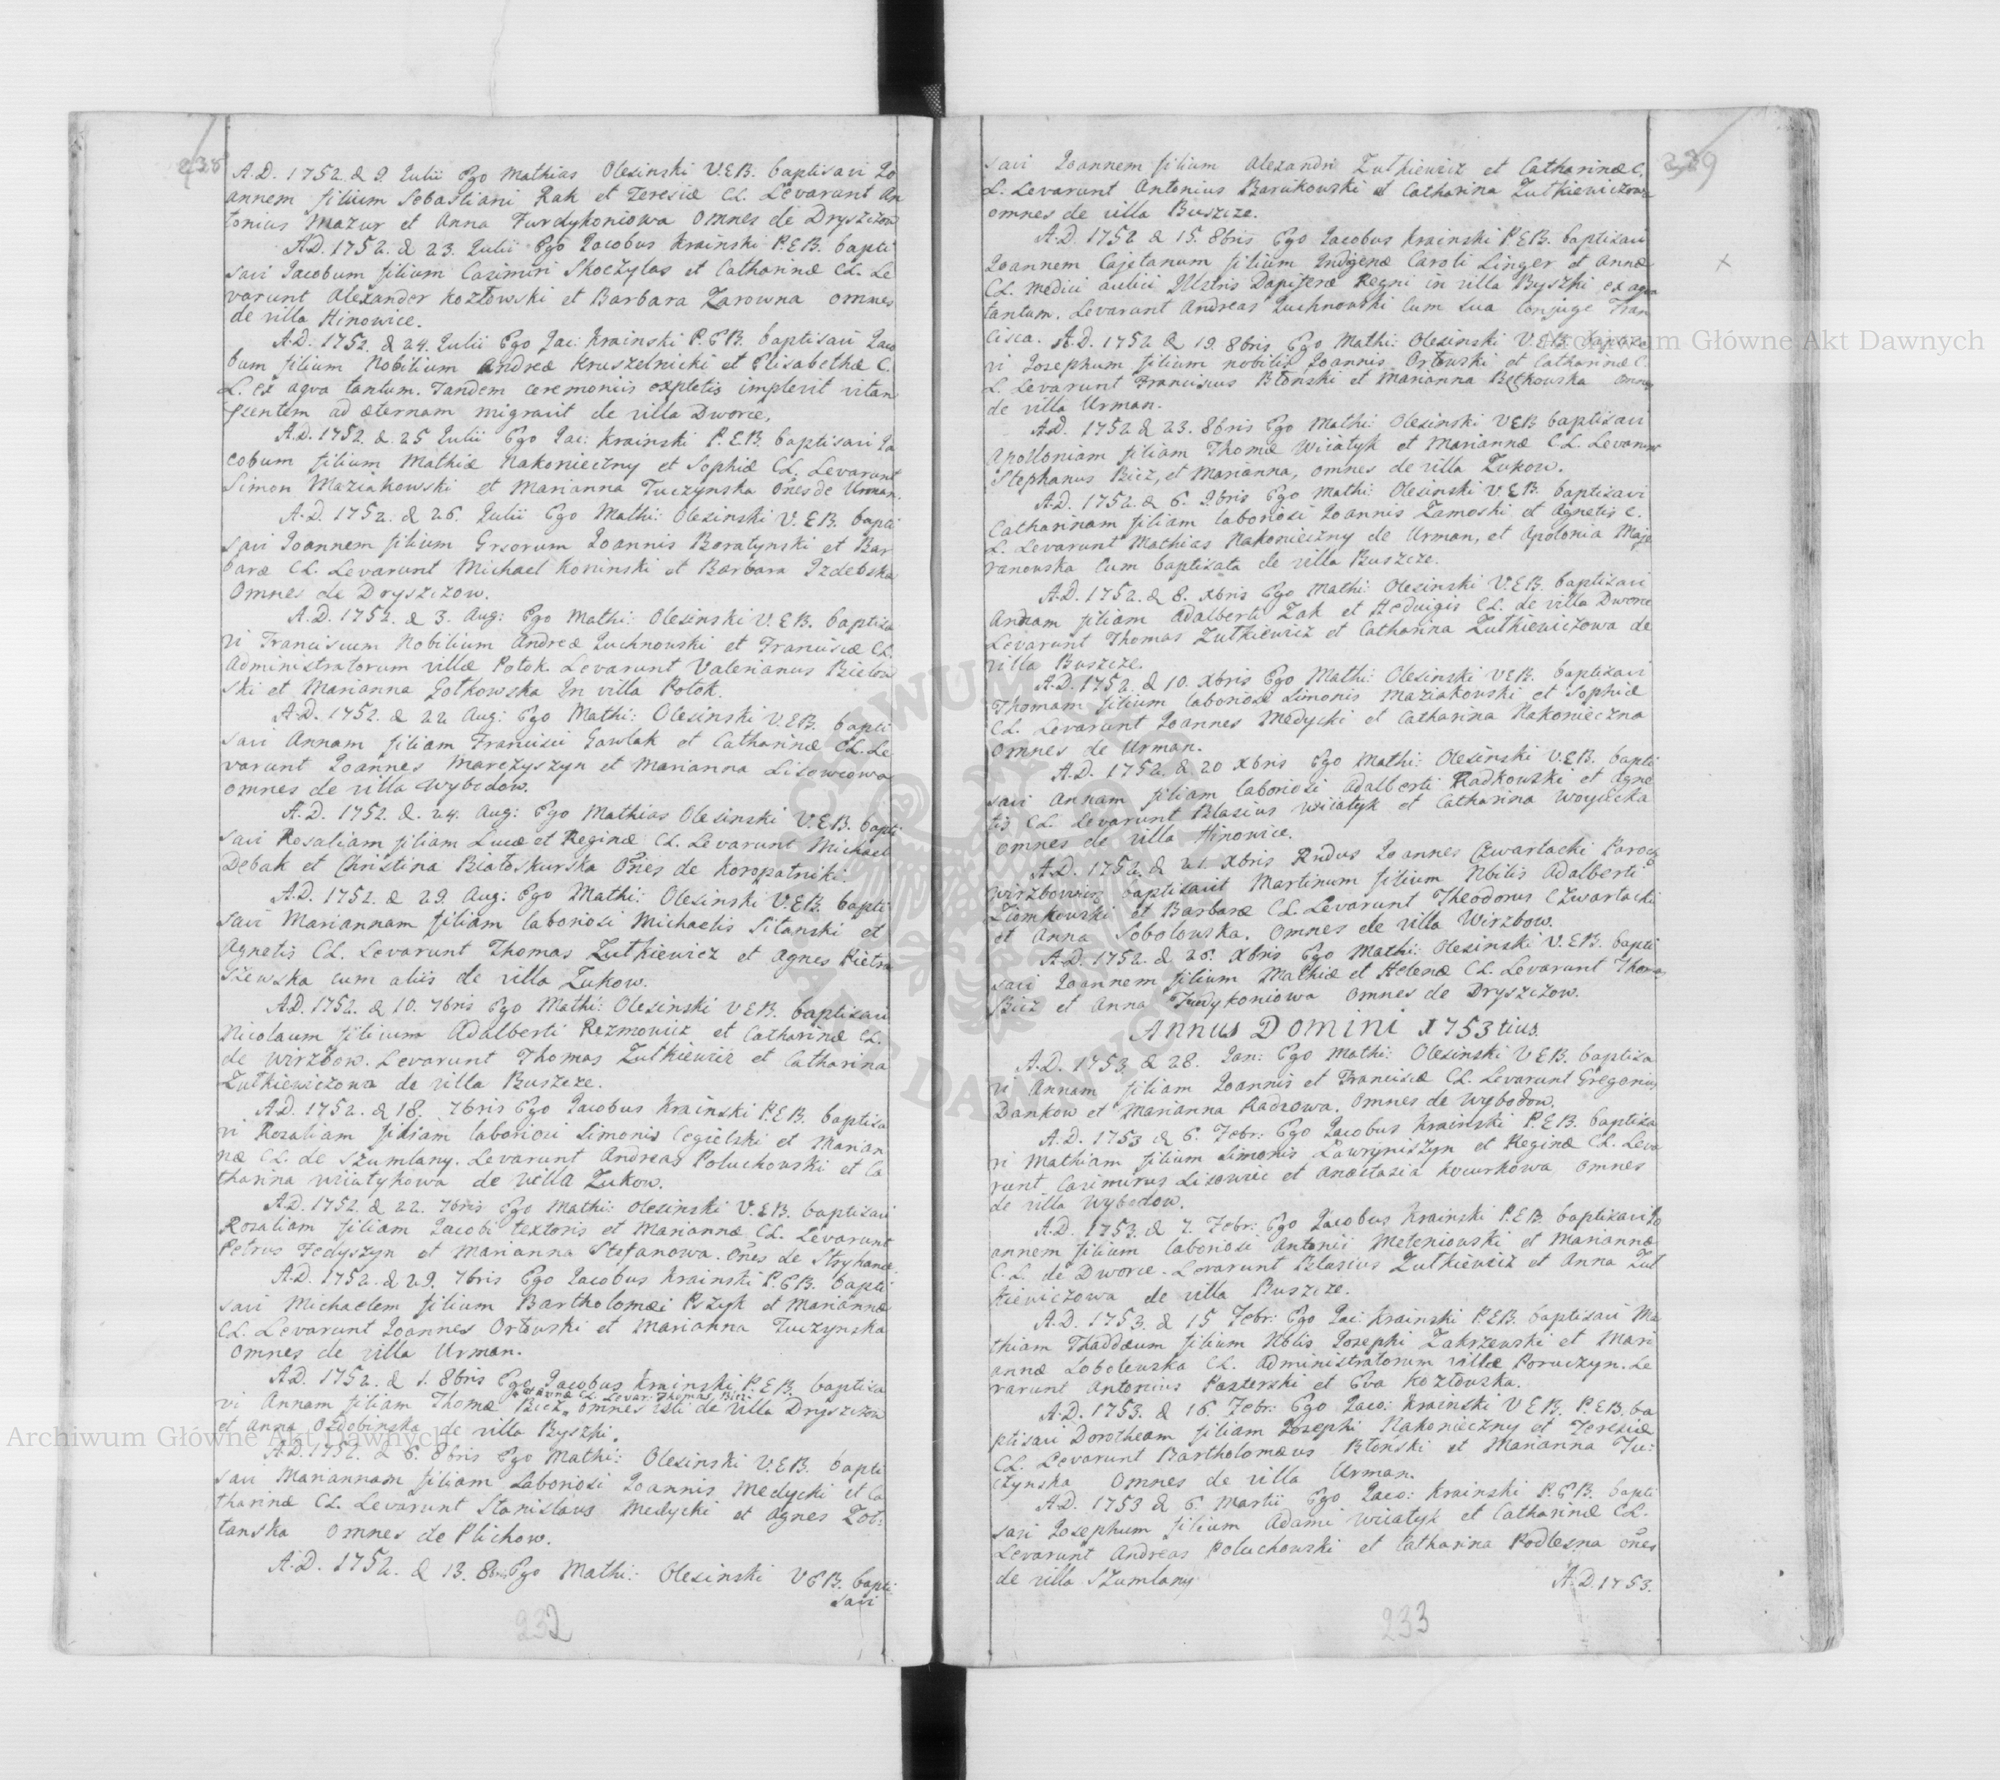 238
A.D. 1752. d 9. Iulii Ego Mathias Olesinski V.E.B. baptisavi Jo
annem filium Sebastiani Rak et Teresiæ CL. Levarunt An
tonius Mazur et Anna Furdykoniowa omnes de Dryszczow
A.D. 1752. d 23. Iulii Ego Jacobus Krainski P.E.B. bapti
savi Jacobum filium Casimiri Skoczylas et Catharinæ CL. Le
varunt Alexander Kozłowski et Barbara Zarowna omnes
de villa Hinowice.
A.D. 1752. d 24. Iulii Ego Jac: Krainski P.E.B. baptisavi Jaco
bum filium Nobilium Andreæ Kruszelnicki et Elisabethæ C.
L. ex aqva tantum. Tandem ceremoniis expletis implevit vitam
ad æternam migravit de villa Dworce.
A.D. 1752. d. 25 Iulii Ego Jac: Krainski P.E.B. baptisavi Ja
cobum filium Mathiæ Nakonieczny et Sophiæ CL. Levarunt
Simon Maziakowski et Marianna Tuczynska oñes de Urman.
A.D. 1752. d 26. Iulii Ego Mathi: Olesinski V.E.B. bapti
savi Joannem filium Grsorum Joannis Boratynski et Bar
baræ CL. Levarunt Michael Koninski et Barbara Izdebska
Omnes de Dryszczow.
A.D. 1752. d 3. Aug: Ego Mathi: Olesinski V.E.B. baptisa
vi Franciscum Nobilium Andreæ Juchnowski et Franciscæ CL.
Administratorum villæ Potok. Levarunt Valerianus Bielow
ski et Marianna Gołkowska In villa Potok.
A.D. 1752. d 22 Aug: Ego Mathi: Olesinski V.E.B. bapti
savi Annam filiam Francisci Gawlak et Catharinæ CL. Le
varunt Joannes Marczyszyn et Marianna Lisowcowa
omnes de villa Wybodow.
A.D. 1752. d. 24. Aug: Ego Mathias Olesinski V.E.B. bapti
savi Rosaliam filiam Lucæ et Reginæ CL. Levarunt Michael
Debak et Christina Białoskurska Oñes de Koropatniki.
A.D. 1752. d 29. Aug: Ego Mathi: Olesinski V.E.B. bapti
savi Mariannam filiam laboriosi Michaelis Silanski et
Agnetis CL. Levarunt Thomas Zutkiewicz et Agnes Pietra
szewska cum aliis de villa Zukow.
A.D. 1752. d 10. 7bris Ego Mathi: Olesinski V.E.B. baptisavi
Nicolaum filium Adalberti Rezmowicz et Catharinæ CL.
de Wirzbow. Levarunt Thomas Zutkiewicz et Catharina
Zutkiewiczowa de villa Buszcze.
A.D. 1752. d 18. 7bris Ego Jacobus Krainski P.E.B. baptisa
vi Rozaliam filiam laboriosi Simonis Cegielski et Marian
næ CL. de Szumlany. Levarunt Andreas Poluchowski et Ca
tharina Wiiatykowa de villa Zukow.
A.D. 1752. d 22. 7bris Ego Mathi: Olesinski V.E.B. baptisavi
Rozaliam filiam Jacobi textoris et Mariannæ CL. Levarunt
Petrus Fedyszyn et Marianna Stefanowa. Oñes de Stryhance.
A.D. 1752. d 29. 7bris Ego Jacobus Krainski P.E.B. bapti
savi Michaelem filium Bartholomæi Pszyk et Mariannæ
CL. Levarunt Joannes Orłowski et Marianna Tuczynska
Omnes de villa Urman.
A.D. 1752. d 1. 8bris Ego Jacobus Krainski P.E.B. baptisa
et Annæ CL. Levar: Thomas Bicz
vi Annam filiam Thomæ Bicz, omnes isti de villa Dryszczow
et Anna Ozdobinska de villa Byszki.
A.D. 1752. d 6. 8bris Ego Mathi: Olesinski V.E.B. bapti
savi Mariannam filiam Laboriosi Joannis Medycki et Ca
tharinæ CL. Levarunt Stanislaus Medycki et Agnes Zoł:
tanska omnes de Plichow.
A.D. 1752. d 13. 8bris Ego Mathi: Olesinski V.E.B. bapti
savi
232
239
savi Joannem filium Alexandri Zutkiewicz et Catharinæ C.
L. Levarunt Antonius Barukowski et Catharina Zutkiewiczowa
omnes de villa Buszcze.
A.D. 1752 d 15. 8bris Ego Jacobus Krainski P.E.B. baptisavi
Joannem Cajetanum filium Indigenæ Caroli Linger et Annæ
CL. Medici aulici Illstris Dapiferæ Regni in villa Byszki ex aqva
tantum. Levarunt Andreas Juchnowski cum sua conjuge Fran
cisca. A.D. 1752 d 19. 8bris Ego Mathi: Olesinski V.E.B. baptisa
vi Josephum filium nobilis Joannis Orłowski et Catharinæ C.
L. Levarunt Franciscus Błonski et Marianna Bętkowska omnes
de villa Urman.
A.D. 1752 d 23. 8bris Ego Mathi: Olesinski V.E.B. baptisavi
Apolloniam filiam Thomæ Wiiatyk et Mariannæ CL. Levarunt
Stephanus Bicz, et Marianna, omnes de villa Zukow.
A.D. 1752. d 6. 9bris Ego Mathi: Olesinski V.E.B. baptisavi
Catharinam filiam laboriosi Joannis Zamoski et Agnetis C.
L. Levarunt Mathias Nakonieczny de Urman, et Apolonia Maje
ranowska cum baptisata de villa Buszcze.
A.D. 1752. d 8. Xbris Ego Mathi: Olesinski V.E.B. baptisavi
Annam filiam Adalberti Zak et Hedvigis CL. de villa Dworce
Levarunt Thomas Zutkiewicz et Catharina Zutkiewiczowa de
villa Buszcze.
A.D. 1752. d 10. Xbris Ego Mathi: Olesinski V.E.B. baptisavi
Thomam filium laboriosi Simonis Maziakowski et Sophiæ
CL. Levarunt Joannes Medycki et Catharina Nakonieczna
omnes de Urman.
A.D. 1752. d 20 Xbris Ego Mathi: Olesinski V.E.B. bapti
savi Annam filiam laboriosi Adalberti Radkowski et Agne
tis CL. Levarunt Blasius Wiiatyk et Catharina Woynicka
omnes de villa Hinowice.
A.D. 1752. d 21. Xbris Rndus Joannes Czwartacki Paroch9
Wirzbowien baptisavit Martinum filium Nbilis Adalberti
Ziomkowski et Barbaræ CL. Levarunt Theodorus Czwartacki
et Anna Sobolowska. Omnes de villa Wirzbow.
A.D. 1752. d 26. Xbris Ego Mathi: Olesinski V.E.B. bapti
savi Joannem filium Mathiæ et Helenæ CL. Levarunt Thomas
Bicz et Anna Furdykoniowa omnes de Dryszczow.
Annus Domini 1753tius.
A.D. 1753 d 28. Jan: Ego Mathi: Olesinski V.E.B. baptisa
vi Annam filiam Joannis et Franciscæ CL. Levarunt Gregorius
Dankow et Marianna Radzowa. Omnes de Wybodow.
A.D. 1753 d 6. Febr: Ego Jacobus Krainski P.E.B. baptisa
vi Mathiam filium Simonis Ławryniszyn et Reginæ CL. Leva
runt Casimirus Lisowiec et Anastasia Kocurkowa omnes
de villa Wybodow.
A.D. 1753. d 7. Febr: Ego Jacobus Krainski P.E.B. baptisavi Jo
annem filium laboriosi Antonii Meteniowski et Mariannæ
C.L. de Dworce. Levarunt Blasius Zutkiewicz et Anna Zut
kiewiczowa de villa Buszcze.
A.D. 1753. d 15 Febr: Ego Jac: Krainski P.E.B. baptisavi Ma
thiam Thaddæum filium Nblis Josephi Zakrzewski et Mari
annæ Sobolewska CL. Administratorum villæ Poruczyn. Le
varunt Antonius Pasterski et Eva Kozłowska.
A.D. 1753. d 16. Febr: Ego Jaco: Krainski V.E.B. P.E.B. ba
ptisavi Dorotheam filiam Josephi Nakonieczny et Teresiæ
CL. Levarunt Bartholomæus Błonski et Marianna Tu:
czynska omnes de villa Urman.
A.D. 1753 d 6. Martii Ego Jaco: Krainski P.E.B. bapti
savi Josephum filium Adami Wiiatyk et Catharinæ CL.
Levarunt Andreas Poluchowski et Catharina Podlesna oñes
de villa Szumlany.
A.D. 1753.
233
Archiwum Główne Akt Dawnych
Archiwum Główne Akt Dawnych